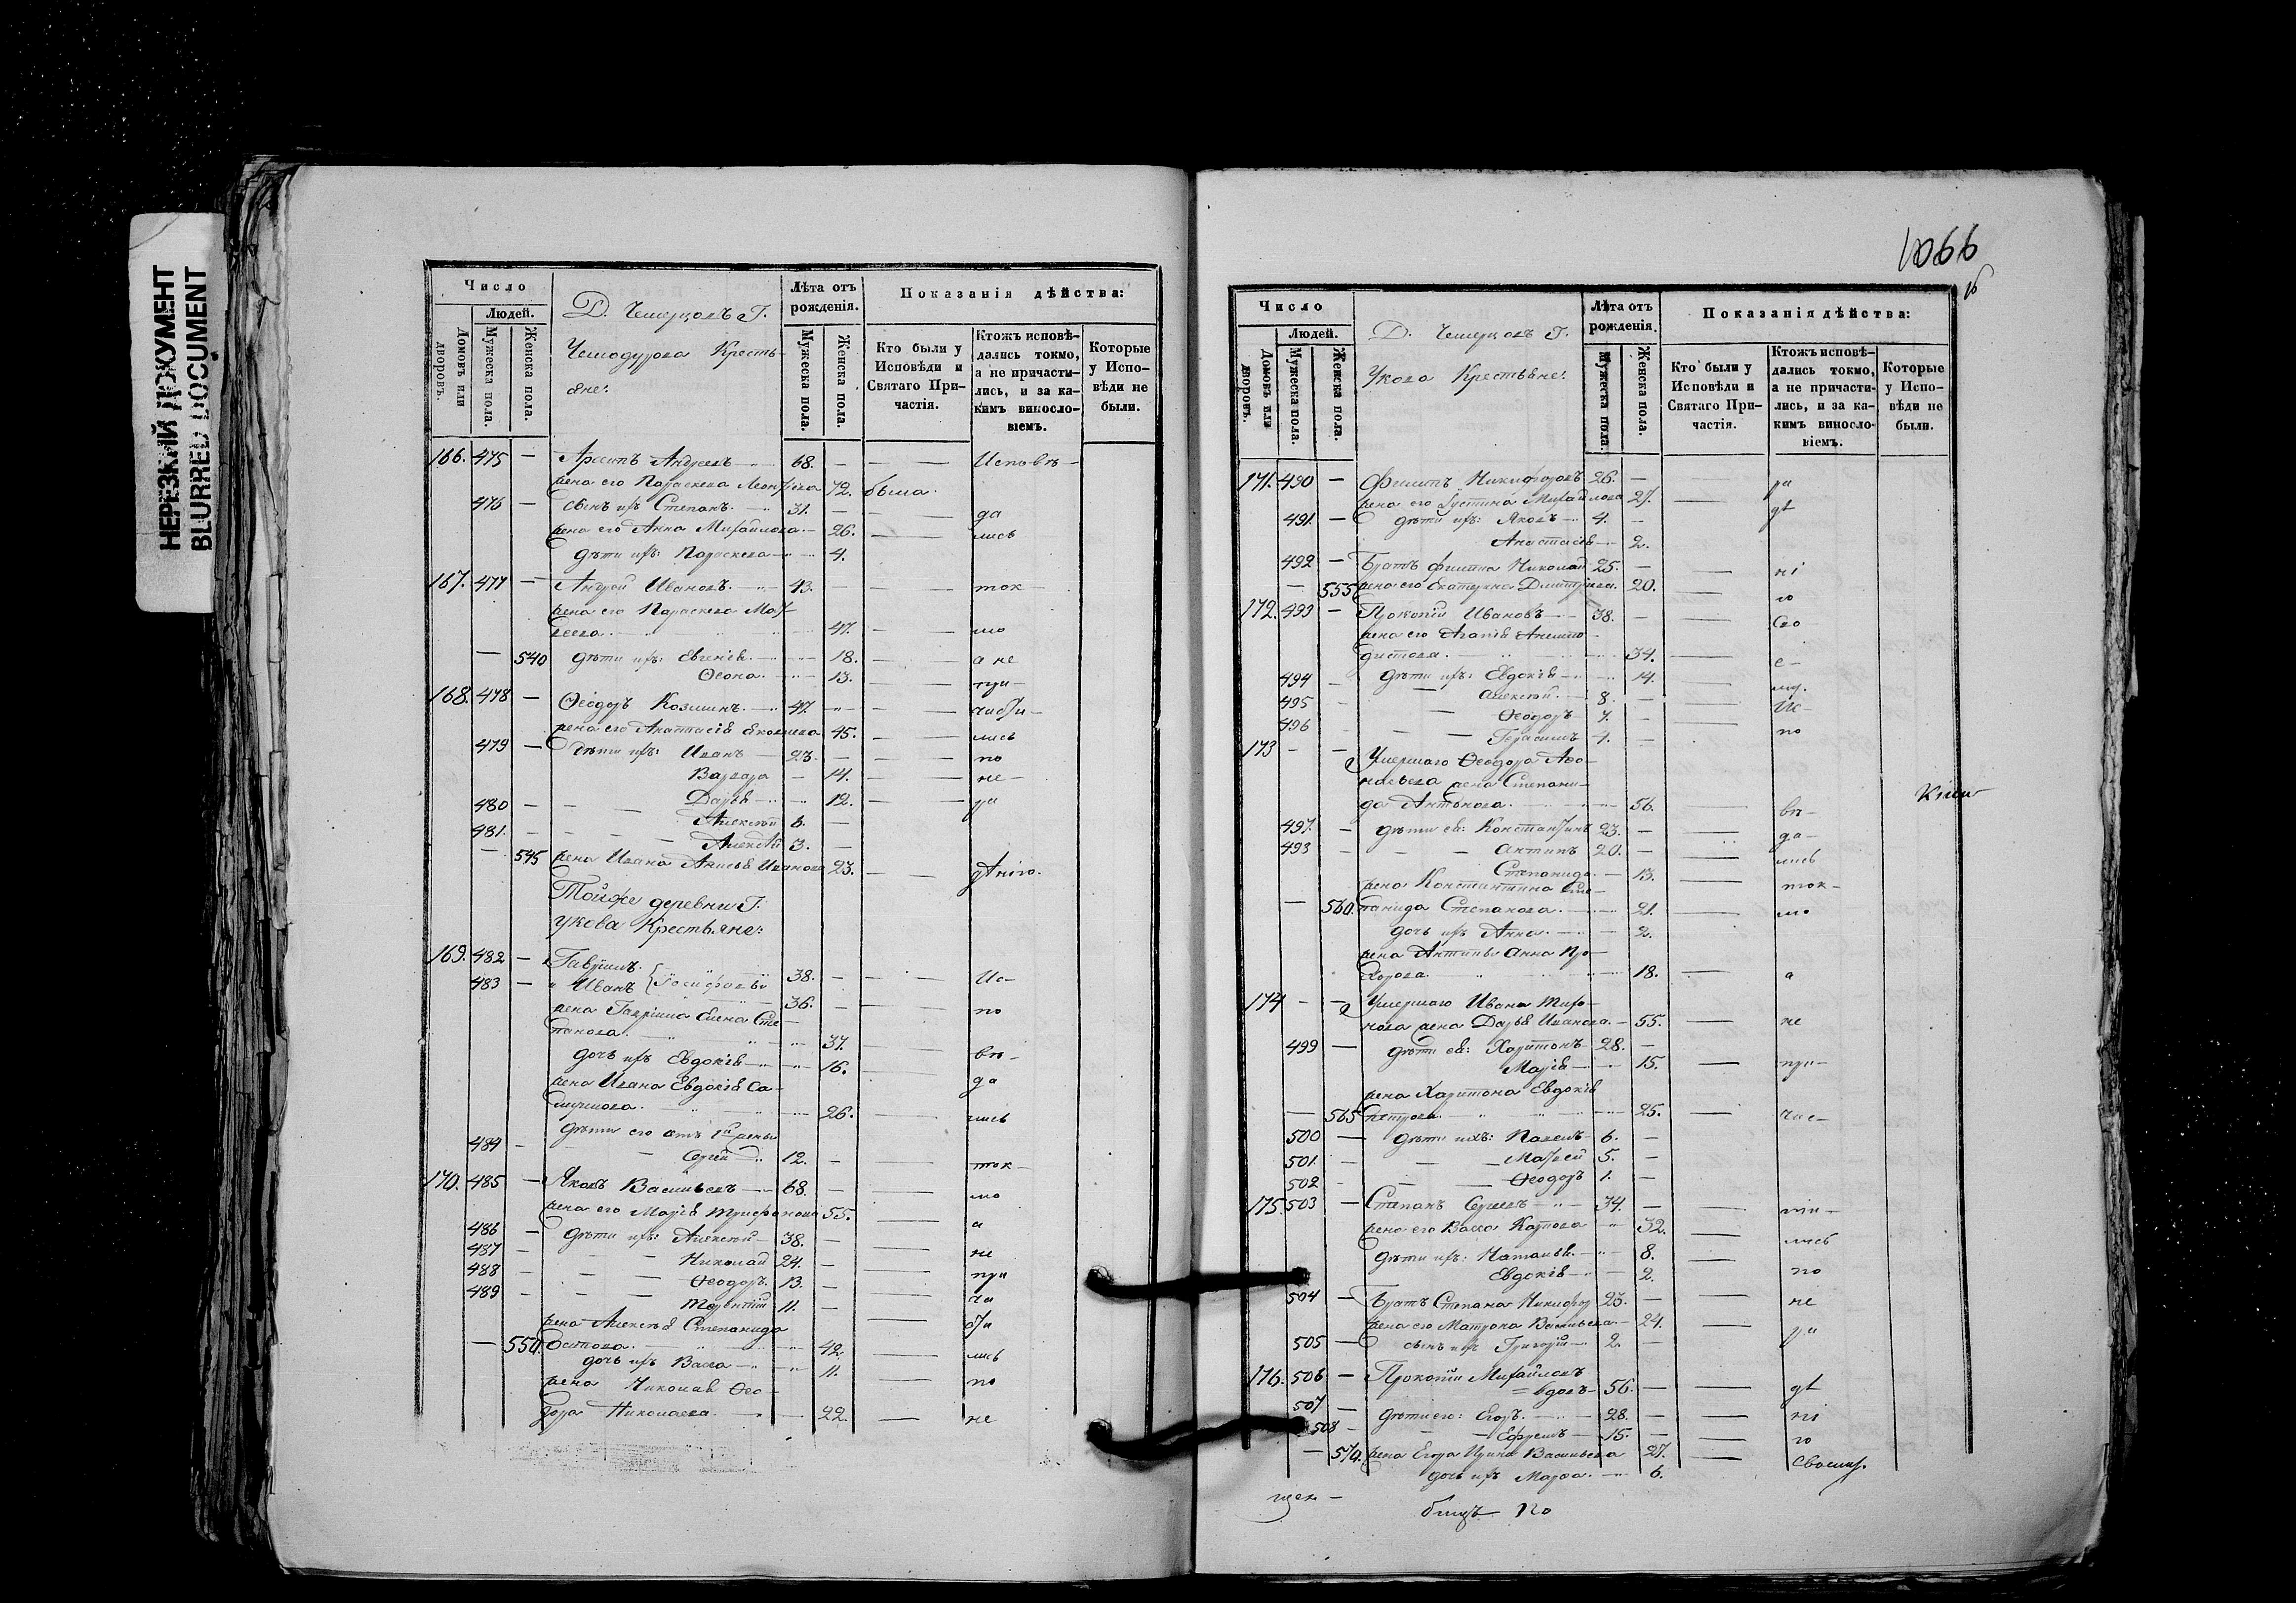 НЕРЕЗКИЙ ДОКУМЕНТ
BLURRED DOCUMENT
Число
Людей.
Домовъ или дворовъ.
Мужеска пола.
Женска пола.
Чемодурова Кресть-
яне:
Лѣта отъ рожденія.
Мужеска пола.
Женска пола.
Показанія дѣйства:
Кто были у Исповѣди и Святаго При-частія.
Ктожъ исповѣ-дались токмо, а не причасти-лись, и за ка-кимъ виносло-віемъ.
Которые у Испо-вѣди не были.
166. 475 — Архипъ Андреевъ 68. — Исповѣ-
жена его Параскева 72. была
476 — сынъ ихъ Степанъ 31. — да
жена его Анна Михайлова 26. лись
дѣти ихъ: Параскева 4.
167. 477 — Андрей Ивановъ 43. — ток
жена его Параскева Маѳ-
ѳеева 47. мо
540 дѣти ихъ: Евгенія 18. а не
13. при-
168. 478 — Ѳеодоръ Козминъ 47. части-
жена его Анастасія Яковлева 45. лись
479 — дѣти ихъ: Иванъ 23. по
Варвара — 14. не-
Дарья 12. ра
480 — Алексѣй 6. —
481. — Алексѣй 3. —
545 жена Ивана Анисья Иванова 23. дѣнію.
Тойже деревни Г.
укова Крестьяне:
169. 482 — Гавріилъ 38. — Ис-
483 — Иванъ } Іосифовы 36. — по
жена Гавріила Елена Сте-
панова 37. вѣ-
дочь ихъ Евдокія 16. да
жена Ивана Евдокія Са-
26. лись
дѣти его отъ 1й жены
484 — Сергей 12. — ток-
170. 485 — Яковъ Васильевъ 68. — мо
жена его Марія Трифонова 55. а
486 — дѣти ихъ: Алексѣй 38. — не
487 — Николай 24. — при
488 — Ѳеодоръ 13. — ча
489 — 11. — сти
жена Алексѣя Степанида
550. Осипова 42. лись
дочь ихъ Васса 11. по
жена Николая Ѳео-
дора Николаева 22. не
1066
Число
Людей.
Домовъ или дворовъ.
Мужеска пола.
Женска пола.
Укова Крестьяне:
Лѣта отъ рожденія.
Мужеска пола.
Женска пола.
Показанія дѣйства:
Кто были у Исповѣди и Святаго При-частія.
Ктожъ исповѣ-дались токмо, а не причасти-лись, и за ка-кимъ виносло-віемъ.
Которые у Испо-вѣди не были.
171. 490 — Филипъ Никифоровъ 26. — ра
жена его Іустина Михайлова 27. дѣ
491. — дѣти ихъ: Яковъ 4. —
Анастасія 2.
492 — Братъ Филипа Николай 25. — ні
555 жена его Екатерина Димитріева 20. ю
172. 493 — Прокопій Ивановъ 38. — сво
жена его Агапія Анемпо-
дистова 34. е-
494 — дѣти ихъ: Евдокія 14. му.
495 — Алексѣй 8. — Ис-
496 — Ѳеодоръ 7. — по
Герасимъ 4. —
173 — — Умершаго Ѳеодора Аѳо-
насьева жена Степани-
да Антонова 56. вѣ-
497. — дѣти ея: Константинъ 23. — да-
493 — Антипъ 20. — лись
Степанида 13. ток-
жена Константина Сте-
560. панида Степанова 21. мо
дочь ихъ Анна 2.
жена Антипы Анна Про-
хорова 18. а
174 — — Умершаго Ивана Миро-
нова жена Дарья Иванова 55. не
499 — дѣти ея: Харитонъ 28. —
Марія 15. при-
жена Харитона Евдокія
565 Петрова 25. час-
500 — дѣти ихъ: Павелъ 6. —
501. — Маѳѳей 5. —
502 — Ѳеодоръ 1. —
175. 503 — Степанъ Сергеевъ 34. — ти-
жена его Васса Карпова 32. лись
дѣти ихъ: Наталья 8. по
Евдокія 2.
504 — Братъ Степана Никифоръ 23. — не
жена его Матрона Васильева 24. ра
505 — сынъ ихъ Григорій 2. —
176. 506 — Прокопій Михайловъ
вдовъ 56. — дѣ
507 — дѣти его: Егоръ 28. — ні
508 — Ефремъ 15. — ю
570. жена Егора Ирина Васильева 27. своему.
дочь ихъ Марѳа 6.